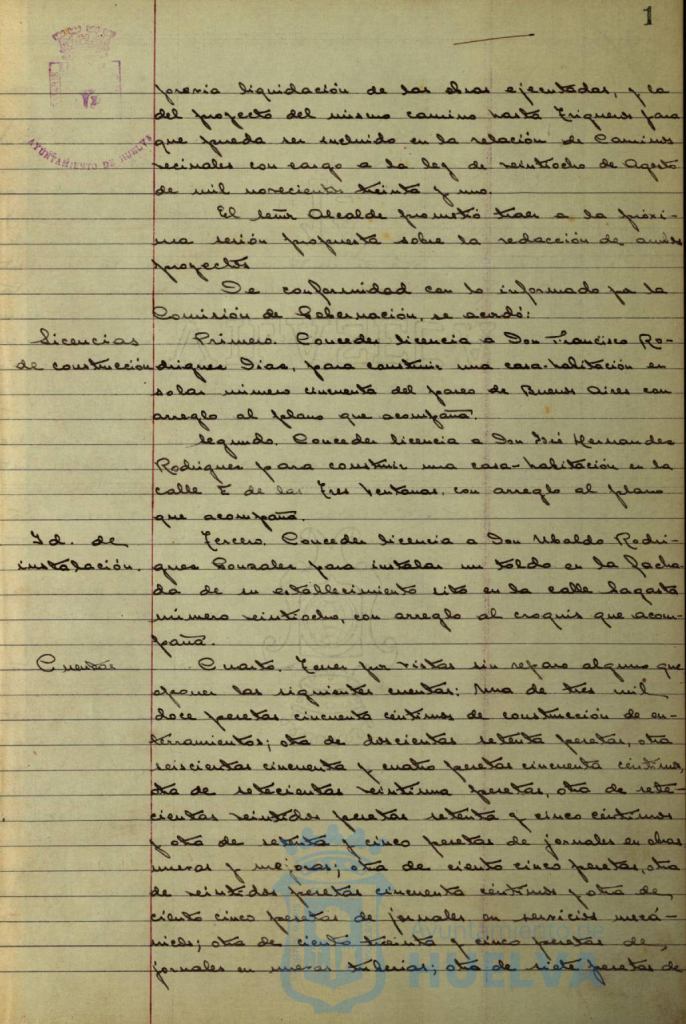 1
AYUNTAMIENTO DE HUELVA
previa liquidación de las obras ejecutadas, y la
del proyecto del mismo camino hasta Trigueros para
que pueda ser incluido en la relación de Caminos
vecinales con cargo a la ley de veintiocho de Agosto
de mil novecientos treinta y uno.
El señor Alcalde prometió traer a la próxi-
ma sesión propuesta sobre la redacción de ambos
proyectos
De conformidad con lo informado por la
Comisión de Gobernación, se acordó:
Licencias
de construcción
Primero. Conceder licencia a Don Francisco Ro-
driguez Diaz, para construir una casa-habitación en
solar número cincuenta del paseo de Buenos Aires con
arreglo al plano que acompaña.
Segundo. Conceder licencia a Don José Hernandez
Rodriguez para construir una casa-habitación en la
calle E de las Tres Ventanas, con arreglo al plano
que acompaña.
Id. de
instalación.
Tercero. Conceder licencia a Don Ubaldo Rodri-
guez Gonzalez para instalar un toldo en la facha-
da de su establecimiento sito en la calle Sagasta
número veintiocho, con arreglo al croquis que acom-
paña.
Cuentas
Cuarto. Tener por vistas sin reparo alguno que
oponer las siguientes cuentas: Una de tres mil
doce pesetas cincuenta céntimos de construcción de en-
terramientos; otra de doscientas setenta pesetas, otra
seiscientas cincuenta y cuatro pesetas cincuenta céntimos,
otra de setecientas veintiuna pesetas, otra de sete-
cientas veintidos pesetas setenta y cinco céntimos
y otra de setenta y cinco pesetas de jornales en obras
nuevas y mejoras; otra de ciento cinco pesetas, otra
de veintidos pesetas cincuenta céntimos y otra de
ciento cinco pesetas de jornales en servicios mecá-
nicos; otra de ciento treinta y cinco pesetas de
jornales en nuevas tuberias; otra de siete pesetas de
Ayuntamiento de
HUELVA